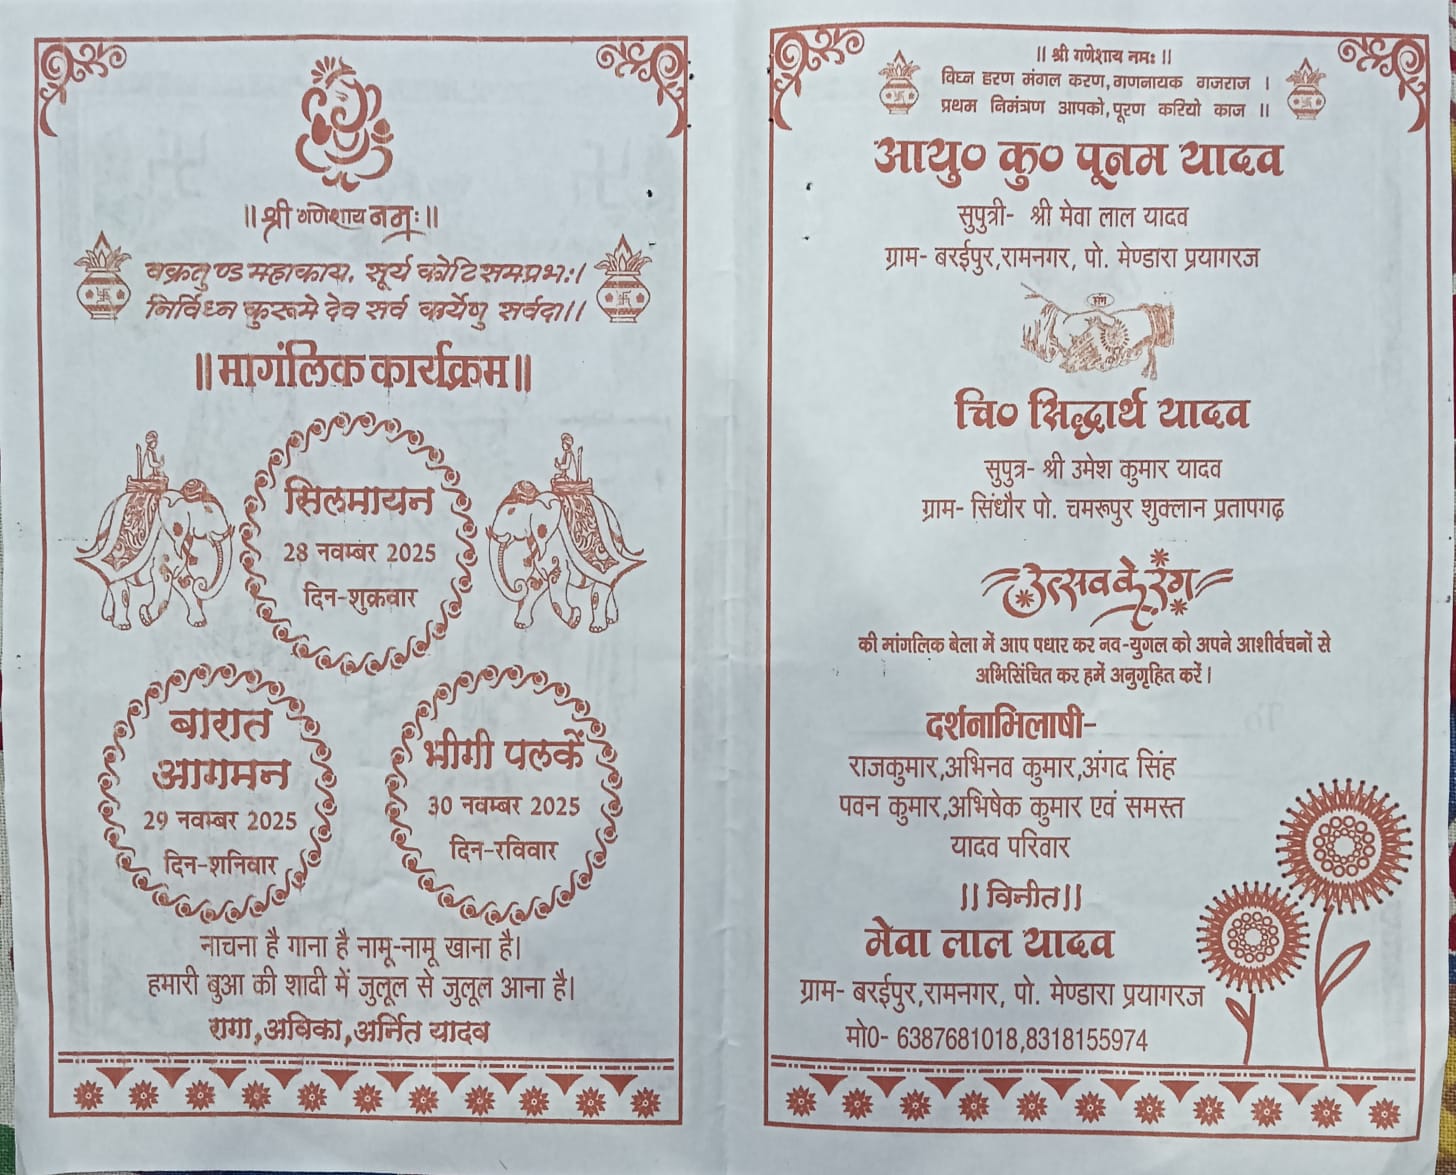 ॥ श्री गणेशाय नमः ॥
वक्रतुण्ड महाकाय, सूर्य कोटि समप्रभः।
निर्विघ्न कुरूमे देव सर्व कार्येषु सर्वदा।।
॥ मागंलिक कार्यक्रम ॥
सिलमायन
28 नवम्बर 2025
दिन-शुक्रवार
बारात
आगमन
29 नवम्बर 2025
दिन-शनिवार
भीगी पलकें
30 नवम्बर 2025
दिन-रविवार
नाचना है गाना है नामू-नामू खाना है।
हमारी बुआ की शादी में जुलूल से जुलूल आना है।
रागा,अविका,अर्नित यादव
॥ श्री गणेशाय नमः ॥
विघ्न हरण मंगल करण,गणनायक गजराज ।
प्रथम निमंत्रण आपको,पूरण करियो काज ॥
आयु० कु० पूनम यादव
सुपुत्री- श्री मेवा लाल यादव
ग्राम- बरईपुर,रामनगर, पो. मेण्डारा प्रयागरज
संग
चि० सिद्धार्थ यादव
सुपुत्र- श्री उमेश कुमार यादव
ग्राम- सिंधौर पो. चमरूपुर शुक्लान प्रतापगढ़
उत्सव के रंग
की मांगलिक बेला में आप पधार कर नव-युगल को अपने आशीर्वचनों से
अभिसिंचित कर हमें अनुगृहित करें।
दर्शनाभिलाषी-
राजकुमार,अभिनव कुमार,अंगद सिंह
पवन कुमार,अभिषेक कुमार एवं समस्त
यादव परिवार
॥ विनीत॥
मेवा लाल यादव
ग्राम- बरईपुर,रामनगर, पो. मेण्डारा प्रयागरज
मो0- 6387681018,8318155974